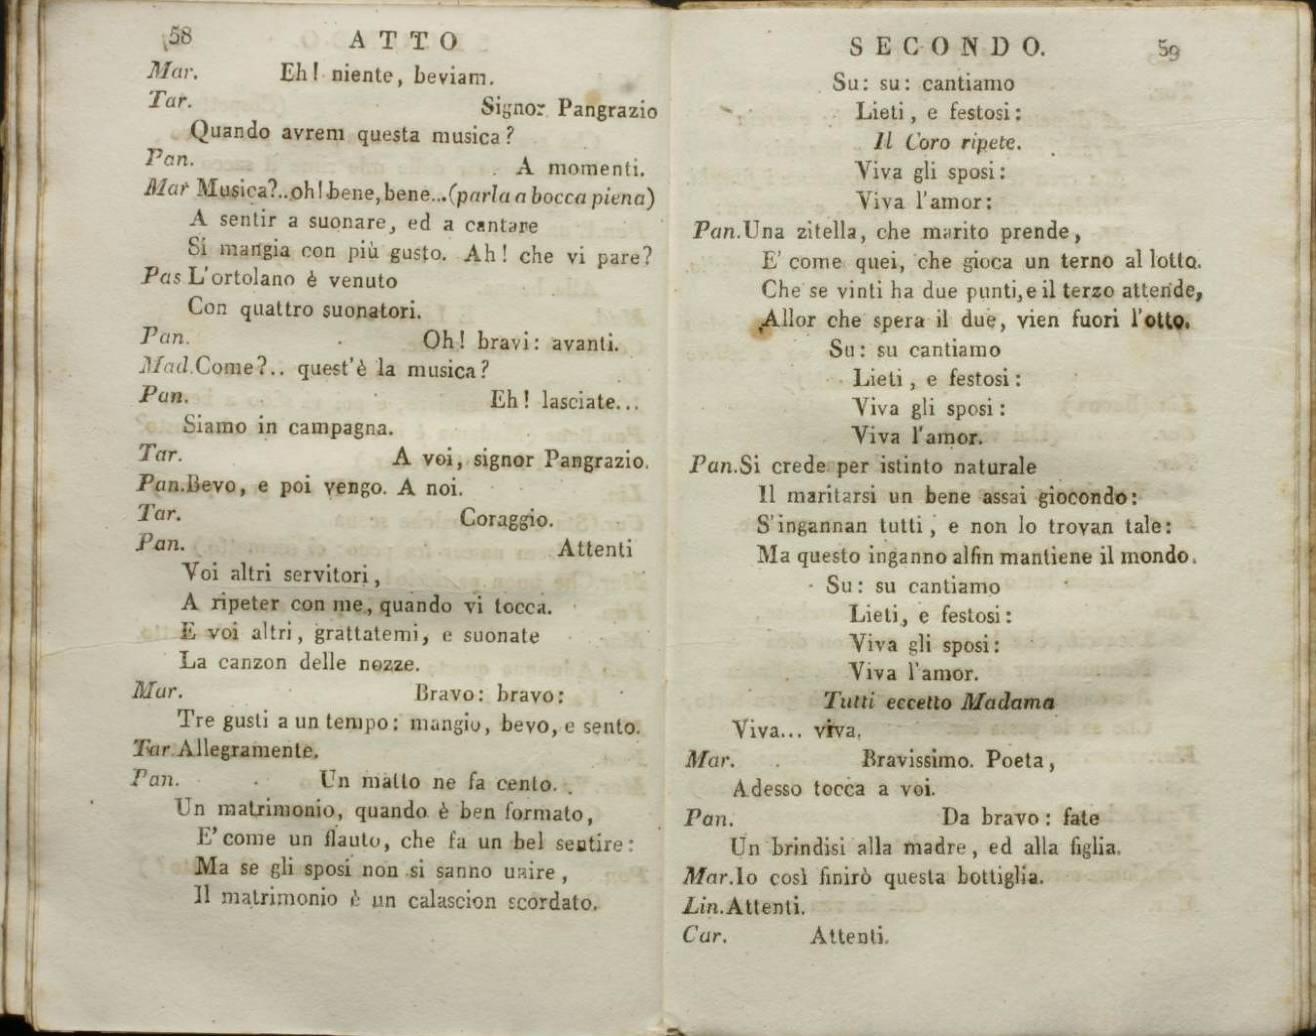 58 ATTO
Mar. Eh! niente, beviam.
Tar. Signor Pangrazio
Quando avrem questa musica?
Pan. A momenti.
Mar Musica?..oh! bene, bene...(parla a bocca piena)
A sentir a suonare, ed a cantare
Si mangia con più gusto. Ah! che vi pare?
Pas L'ortolano è venuto
Con quattro suonatori.
Pan. Oh! bravi: avanti.
Mad. Come?.. quest'è la musica?
Pan. Eh! lasciate...
Siamo in campagna.
Tar. A voi, signor Pangrazio.
Pan. Bevo, e poi vengo. A noi.
Tar. Coraggio.
Pan. Attenti
Voi altri servitori,
A ripeter con me, quando vi tocca.
E voi altri, grattatemi, e suonate
La canzon delle nozze.
Mar. Bravo: bravo:
Tre gusti a un tempo: mangio, bevo, e sento.
Tar Allegramente.
Pan. Un matto ne fa cento.
Un matrimonio, quando è ben formato,
E' come un flauto, che fa un bel sentire:
Ma se gli sposi non si sanno unire,
Il matrimonio è un calascion scordato.
SECONDO. 59
Su: su: cantiamo
Lieti, e festosi:
Il Coro ripete.
Viva gli sposi:
Viva l'amor:
Pan. Una zitella, che marito prende,
E' come quei, che gioca un terno al lotto.
Che se vinti ha due punti, e il terzo attende,
Allor che spera il due, vien fuori l'otto.
Su: su cantiamo
Lieti, e festosi:
Viva gli sposi:
Viva l'amor.
Pan. Si crede per istinto naturale
Il maritarsi un bene assai giocondo:
S'ingannan tutti, e non lo trovan tale:
Ma questo inganno alfin mantiene il mondo.
Su: su cantiamo
Lieti, e festosi:
Viva gli sposi:
Viva l'amor.
Tutti eccetto Madama
Viva... viva.
Mar. Bravissimo. Poeta,
Adesso tocca a voi.
Pan. Da bravo: fate
Un brindisi alla madre, ed alla figlia.
Mar. Io così finirò questa bottiglia.
Lin. Attenti.
Car. Attenti.